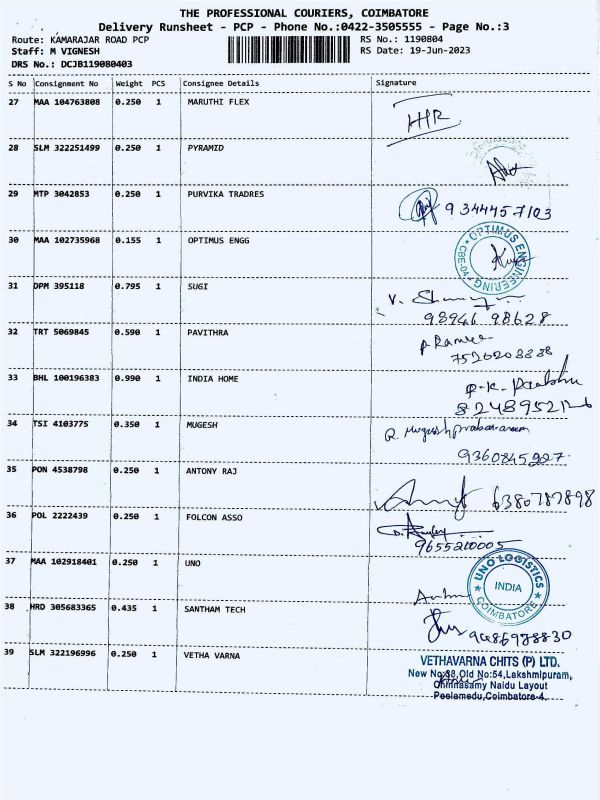 THE PROFESSIONAL COURIERS, COIMBATORE
Delivery Runsheet - PCP - Phone No.:0422-3505555 - Page No.:3
Route: KAMARAJAR ROAD PCP RS No.: 1190804
Staff: M VIGNESH RS Date: 19-Jun-2023
DRS No.: DCJB119080403
S No Consignment No Weight PCS Consignee Details Signature
27 MAA 104763808 0.250 1 MARUTHI FLEX
28 SLM 322251499 0.250 1 PYRAMID
29 MTP 3042853 0.250 1 PURVIKA TRADRES 9344457103
30 MAA 102735968 0.155 1 OPTIMUS ENGG
OPTIMUS ENGINEERING
CBE-04
31 DPM 395118 0.795 1 SUGI
98946 98628
32 TRT 5069845 0.590 1 PAVITHRA
33 BHL 100196383 0.990 1 INDIA HOME
34 TSI 4103775 0.350 1 MUGESH
9360845227
35 PON 4538798 0.250 1 ANTONY RAJ
6380787898
36 POL 2222439 0.250 1 FOLCON ASSO
9655210005
37 MAA 102918401 0.250 1 UNO
UNO LOGISTICS
INDIA
COIMBATORE
38 HRD 305683365 0.435 1 SANTHAM TECH
39 SLM 322196996 0.250 1 VETHA VARNA
VETHAVARNA CHITS (P) LTD.
New No:38,Old No:54,Lakshmipuram,
Chinnasamy Naidu Layout
Peelamedu,Coimbatore-4.